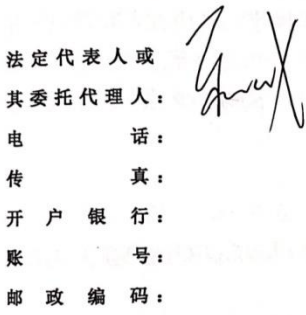 法定代表人或
其委托代理人：
电话：
传真：
开户银行：
账号：
邮政编码：